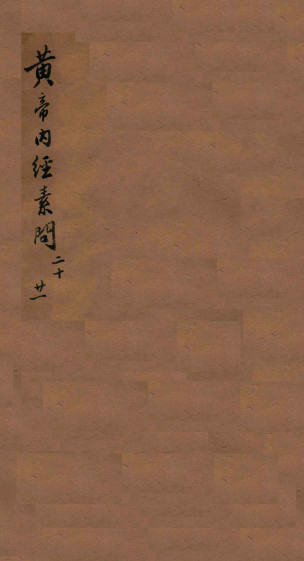 黃帝內經素問
二十
廿一